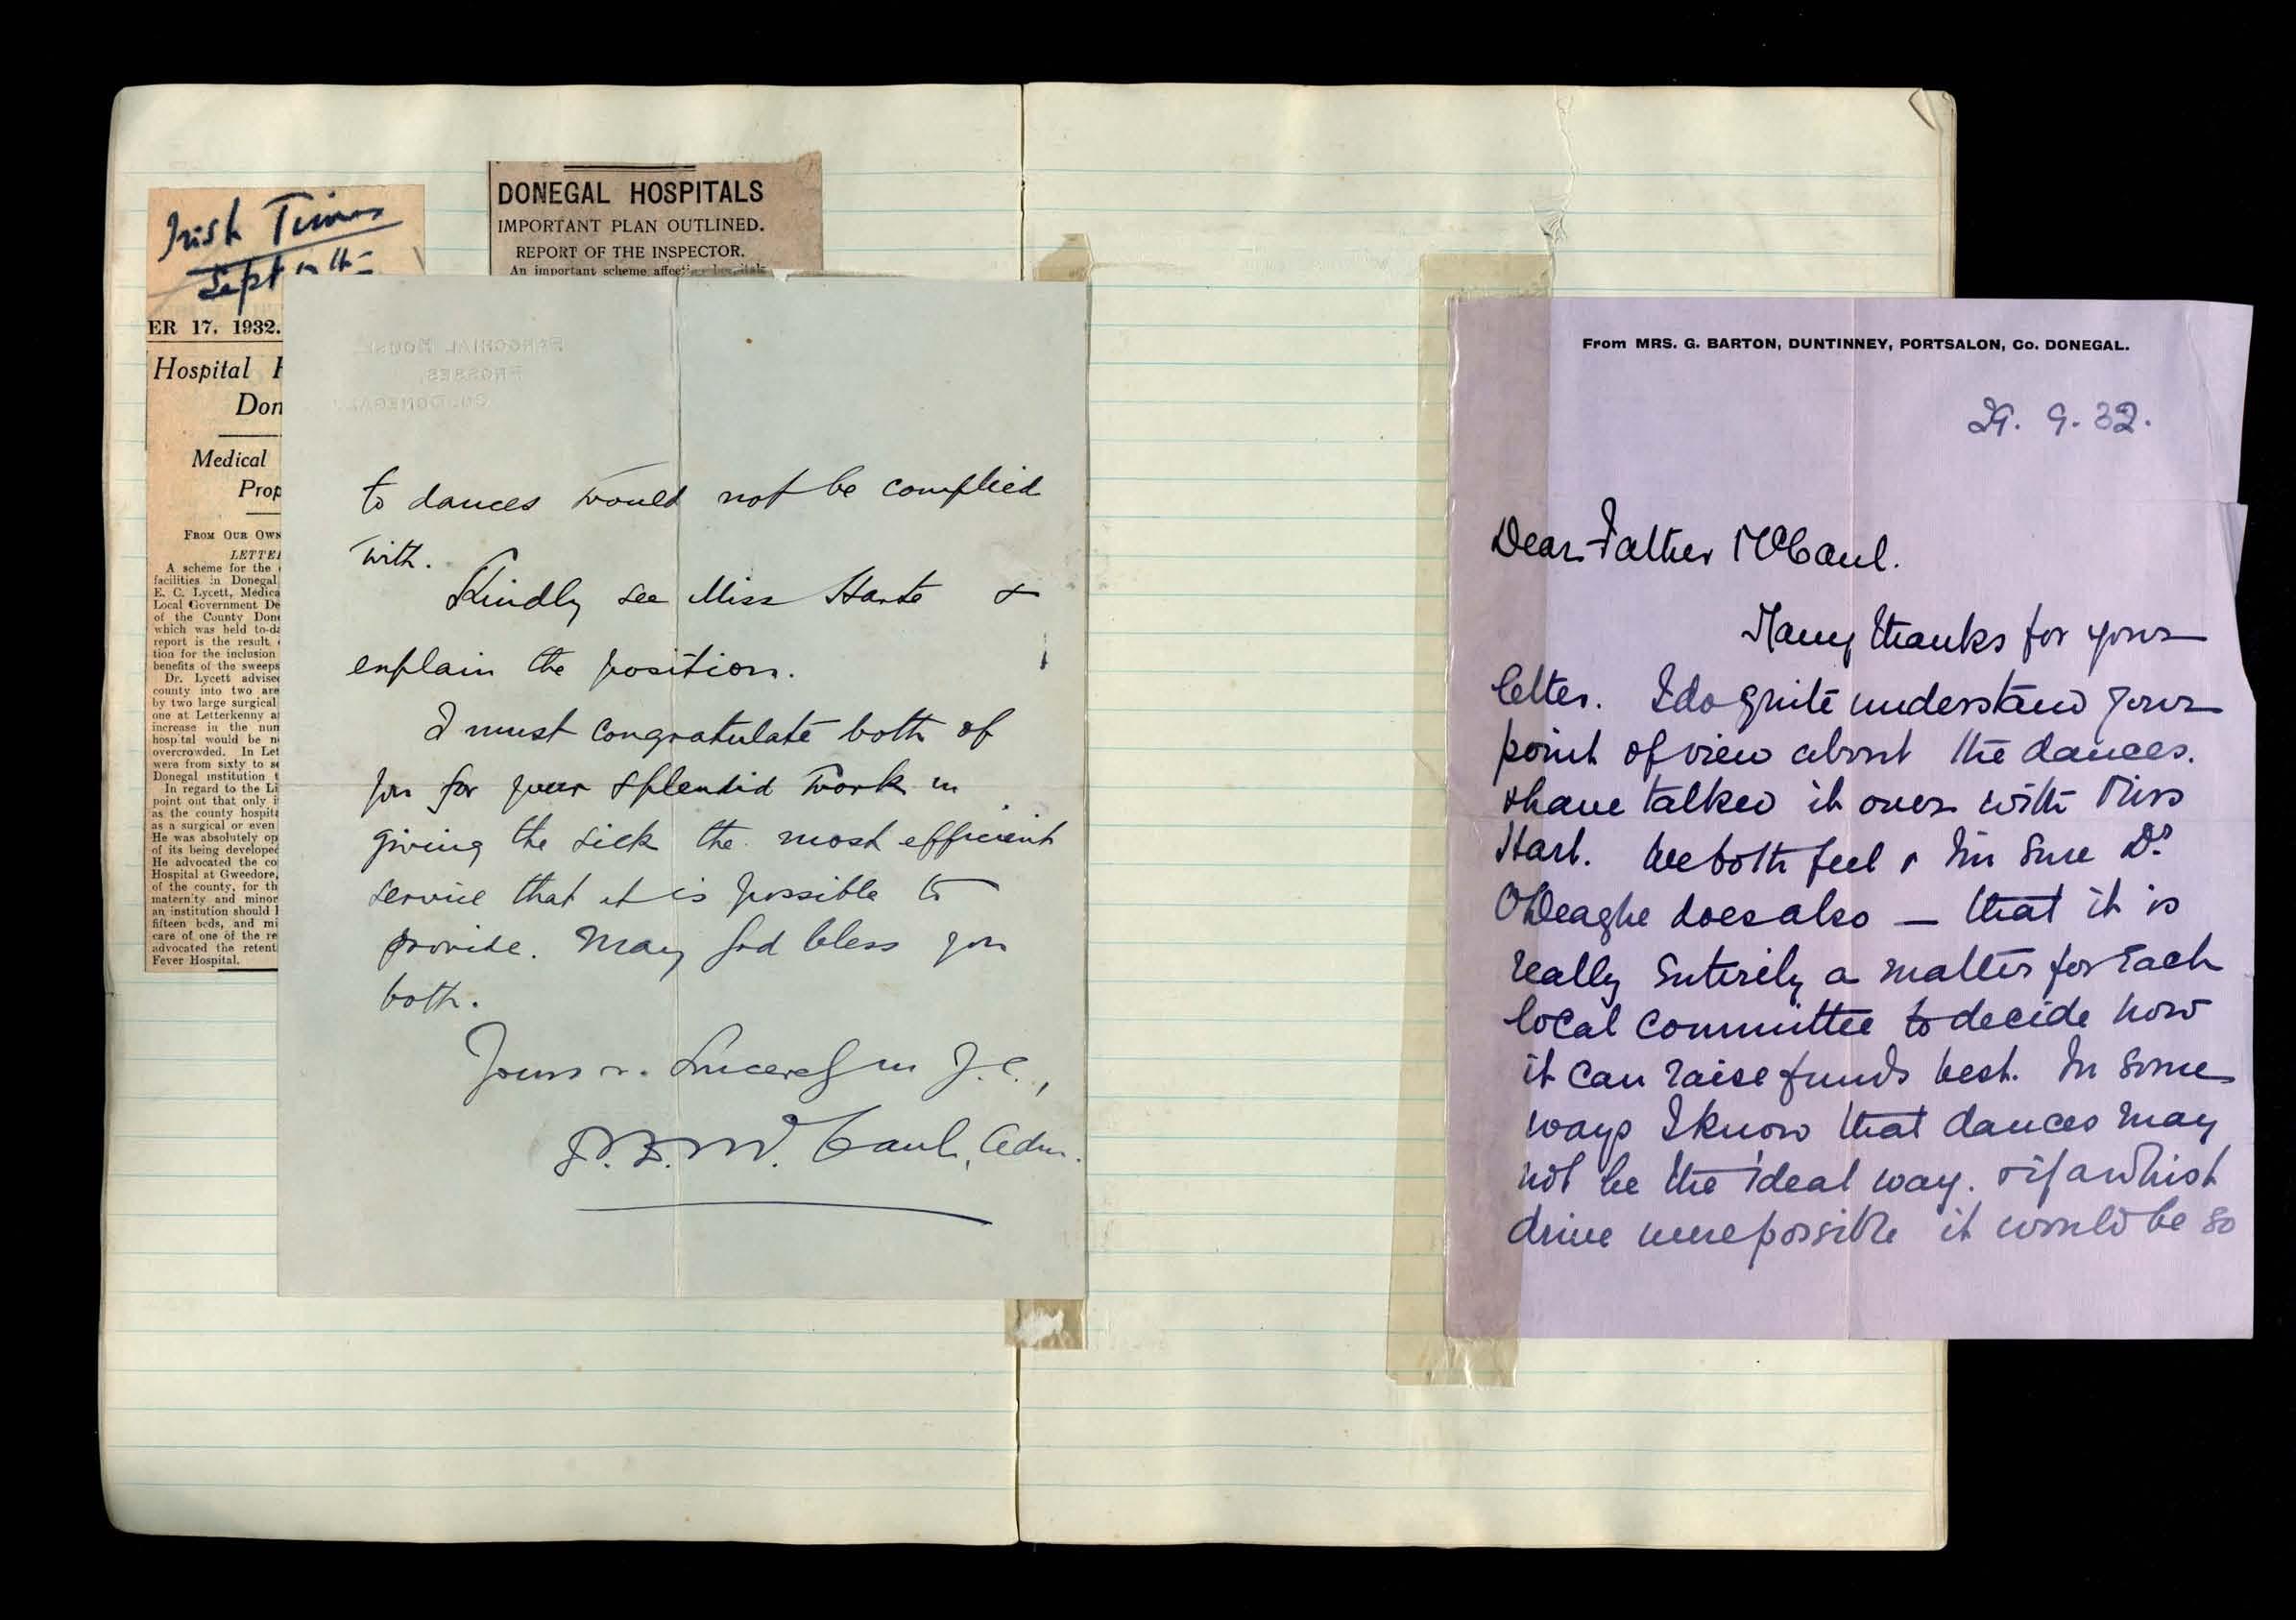 Irish Times
Sept 17th
ER 17, 1932.
Hospital
Don
Medical
Prop
FROM OUR OWN
LETTE
A scheme for the
facilities in Donegal
E. C. Lycett, Medica
Local Government De
of the County Done
which was held to-da
report is the result
tion for the inclusion
benefits of the sweeps
Dr. Lycett advise
county into two are
by two large surgical
one at Letterkenny a
increase in the num
hosp'tal would be n
overcrowded. In Let
were from sixty to se
Donegal institution t
In regard to the Li
point out that only i
as the county hospita
as a surgical or even
He was absolutely op
of its being developed
He advocated the co
Hospital at Gweedore,
of the county, for th
maternity and minor
an institution should
fifteen beds, and mi
care of one of the re
advocated the retent
Fever Hospital.
DONEGAL HOSPITALS
IMPORTANT PLAN OUTLINED.
REPORT OF THE INSPECTOR.
An important scheme
PAROCHIAL HOUSE
FROSSES,
CO. DONEGAL
to dances would not be complied
with.
Kindly see Miss Harte &
explain the position.
I must congratulate both of
you for your splendid work in
giving the sick the most efficient
service that it is possible to
provide. May God bless you
both.
Yours v. Sincerely in J.C.,
McCaul, Adm.
From MRS. G. BARTON, DUNTINNEY, PORTSALON, Co. DONEGAL.
29. 9. 32.
Dear Father McCaul.
Many thanks for your
letter. I do quite understand your
point of view about the dances.
& have talked it over with Miss
Hart. We both feel & I'm sure Dr
O'Deaghe does also — that it is
really entirely a matter for each
local committee to decide how
it can raise funds best. In some
ways I know that dances may
not be the ideal way. & if a whist
drive were possible it would be so